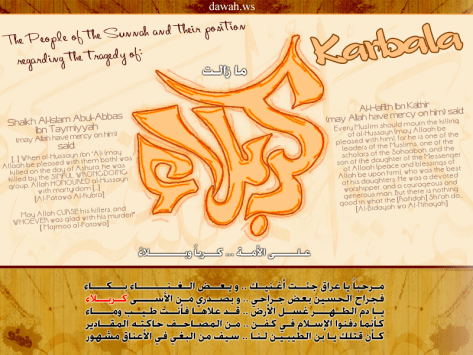 dawah.ws
The People of the Sunnah and their position
regarding the tragedy of:
Karbala
ما زالت
كربلاء
Shaikh Al-Islam Abul-Abbas
Ibn Taymiyyah
(may Allah have mercy on him)
said:
[..] When al-Hussayn ibn 'Ali (may
Allaah be pleased with them both) was
killed on the day of Ashura, he was
killed by the SINFUL, WRONGDOING
group. Allah HONOURED al-Hussayn
with martyrdom [..]
[Al-Fatawa Al-Kubra]
May Allah CURSE his killers and
WHOEVER was glad with his murder"
[Majmoo al-Fatawa]
Al-Hafith Ibn Kathir
(may Allah have mercy on him) said:
Every Muslim should mourn the killing
of al-Hussayn (may Allaah be
pleased with him), for he is one of the
leaders of the Muslims, one of the
scholars of the Sahaabah, and the
son of the daughter of the Messenger
of Allaah (peace and blessings of
Allah be upon him), who was the best
of his daughters. He was a devoted
worshipper, and a courageous and
generous man. But there is nothing
good in what the [Rafidah] Shi'ah do..
[Al-Bidayah wa Al-Nihayah]
على الأمة ... كربا وبلاء
مرحباً يا عراق جئت أغنيك .. و بعض الغناء بكاء
فجراح الحسين بعض جراحي .. و بصدري من الأسى كربلاء
يا دم الطهر غسل الأرض .. قد علاها فأنت طيب وماء
كأنما دفنوا الإسلام في كفن .. من المصاحف حاكته المقادير
كأن قتلك يا بن الطيبين لنا .. سيف من البغي في الأعناق مشهور